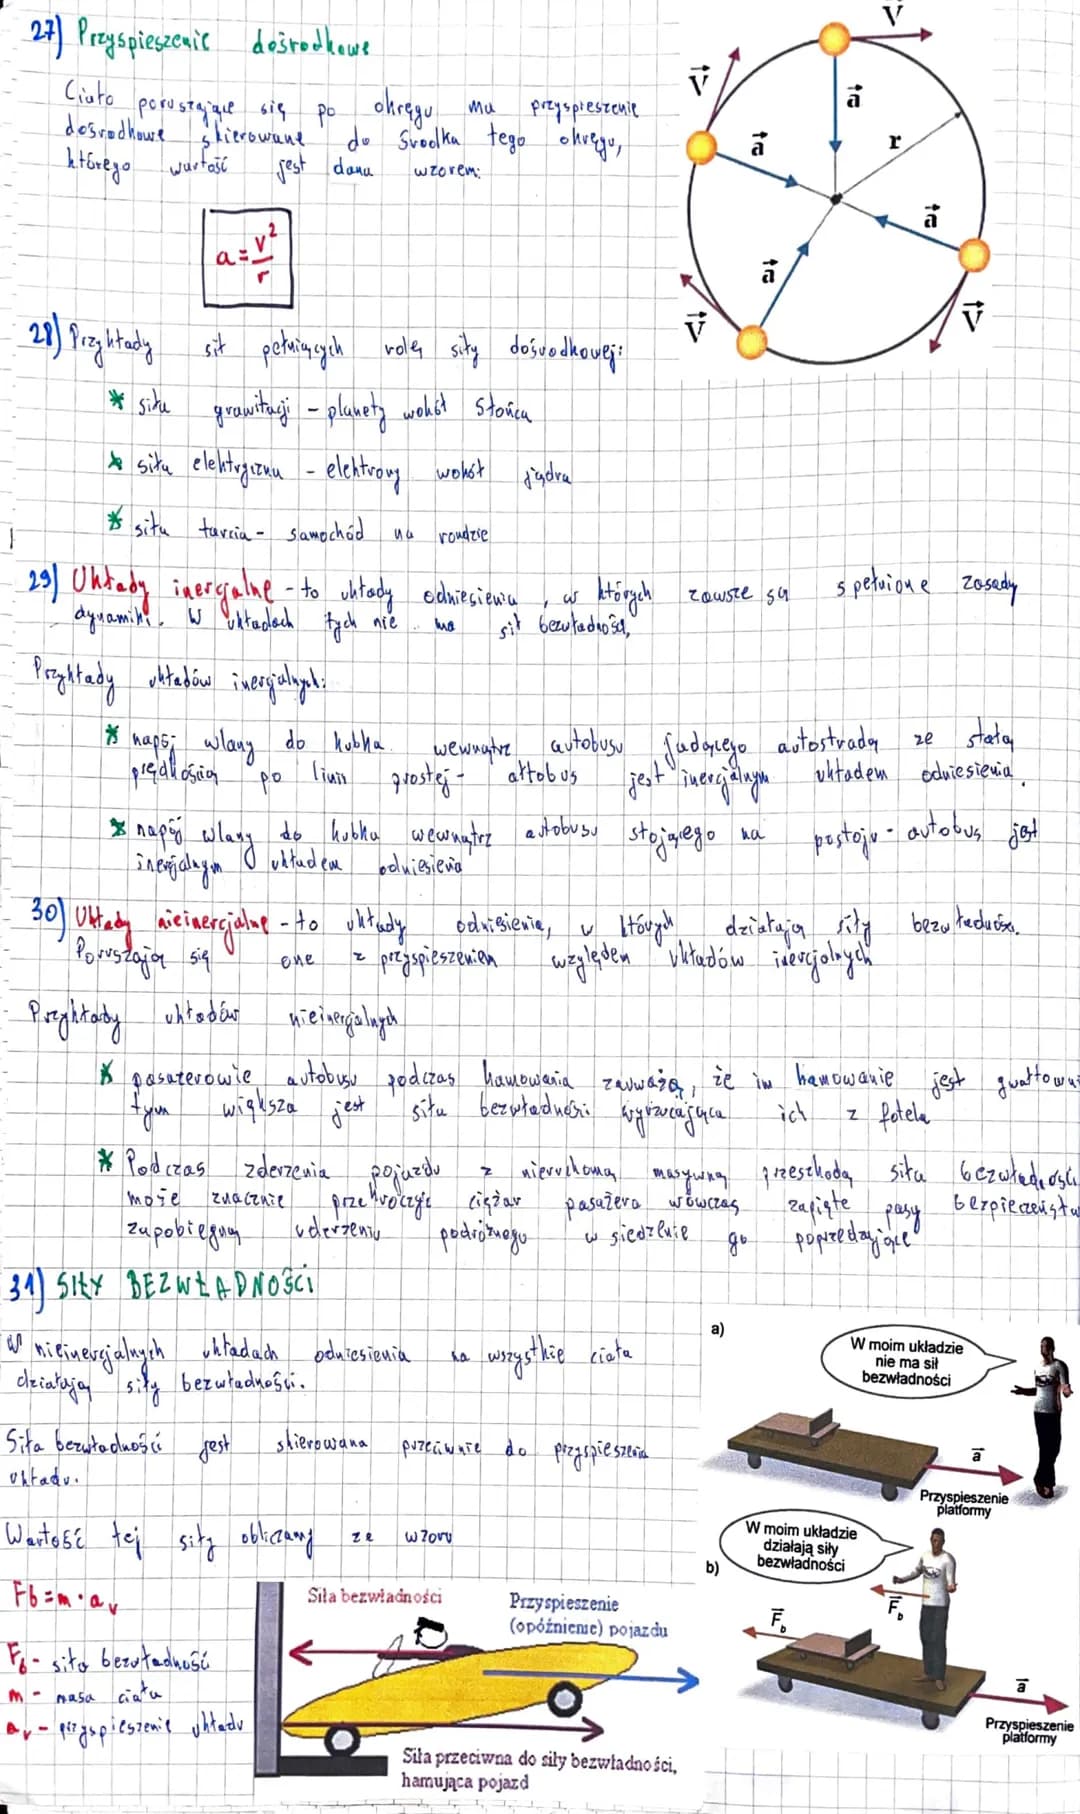 27) Przyspieszenie dośrodkowe
Ciało poruszające się po okręgu ma przyspieszenie
dośrodkowe skierowane do środka tego okręgu,
którego wartość jest dana wzorem:
a = v²/r
V
V
a
a
r
a
a
V
V
28) Przykłady sił pełniących rolę siły dośrodkowej:
* siła grawitacji - planety wokół Słońca
* siła elektryczna - elektrony wokół jądra
* siła tarcia - samochód na rondzie
29) Układy inercjalne - to układy odniesienia, w których zawsze są spełnione zasady
dynamiki. W układach tych nie ma sił bezwładności,
Przykłady układów inercjalnych:
* napój wlany do kubka wewnątrz autobusu jadącego autostradą ze stałą
prędkością po linii prostej - autobus jest inercjalnym układem odniesienia.
* napój wlany do kubka wewnątrz autobusu stojącego na postoju - autobus jest
inercjalnym układem odniesienia
30) Układy nieinercjalne - to układy odniesienia, w których działają siły bezwładności.
Poruszają się one z przyspieszeniem względem układów inercjalnych
Przykłady układów nieinercjalnych
* pasażerowie autobusu podczas hamowania zauważą, że im hamowanie jest gwałtown
tym większa jest siła bezwładności wyrzucająca ich z fotela
* Podczas zderzenia pojazdu z nieruchomą masywną przeszkodą siła bezwładności
może znacznie przekroczyć ciężar pasażera wówczas zapięte pasy bezpieczeństwa
zapobiegną uderzeniu podróżnego w siedzenie go poprzedzające
31) SIŁY BEZWŁADNOŚCI
W nieinercjalnych układach odniesienia na wszystkie ciała
działają siły bezwładności.
Siła bezwładności jest skierowana przeciwnie do przyspieszenia
układu.
Wartość tej siły obliczamy ze wzoru
Fb = m · au
Fb - siła bezwładność
m - masa ciała
au - przyspieszenie układu
Siła bezwładności
Przyspieszenie
(opóźnienie) pojazdu
Siła przeciwna do siły bezwładności,
hamująca pojazd
a)
W moim układzie
nie ma sił
bezwładności
a
Przyspieszenie
platformy
b)
W moim układzie
działają siły
bezwładności
Fb
Fb
a
Przyspieszenie
platformy